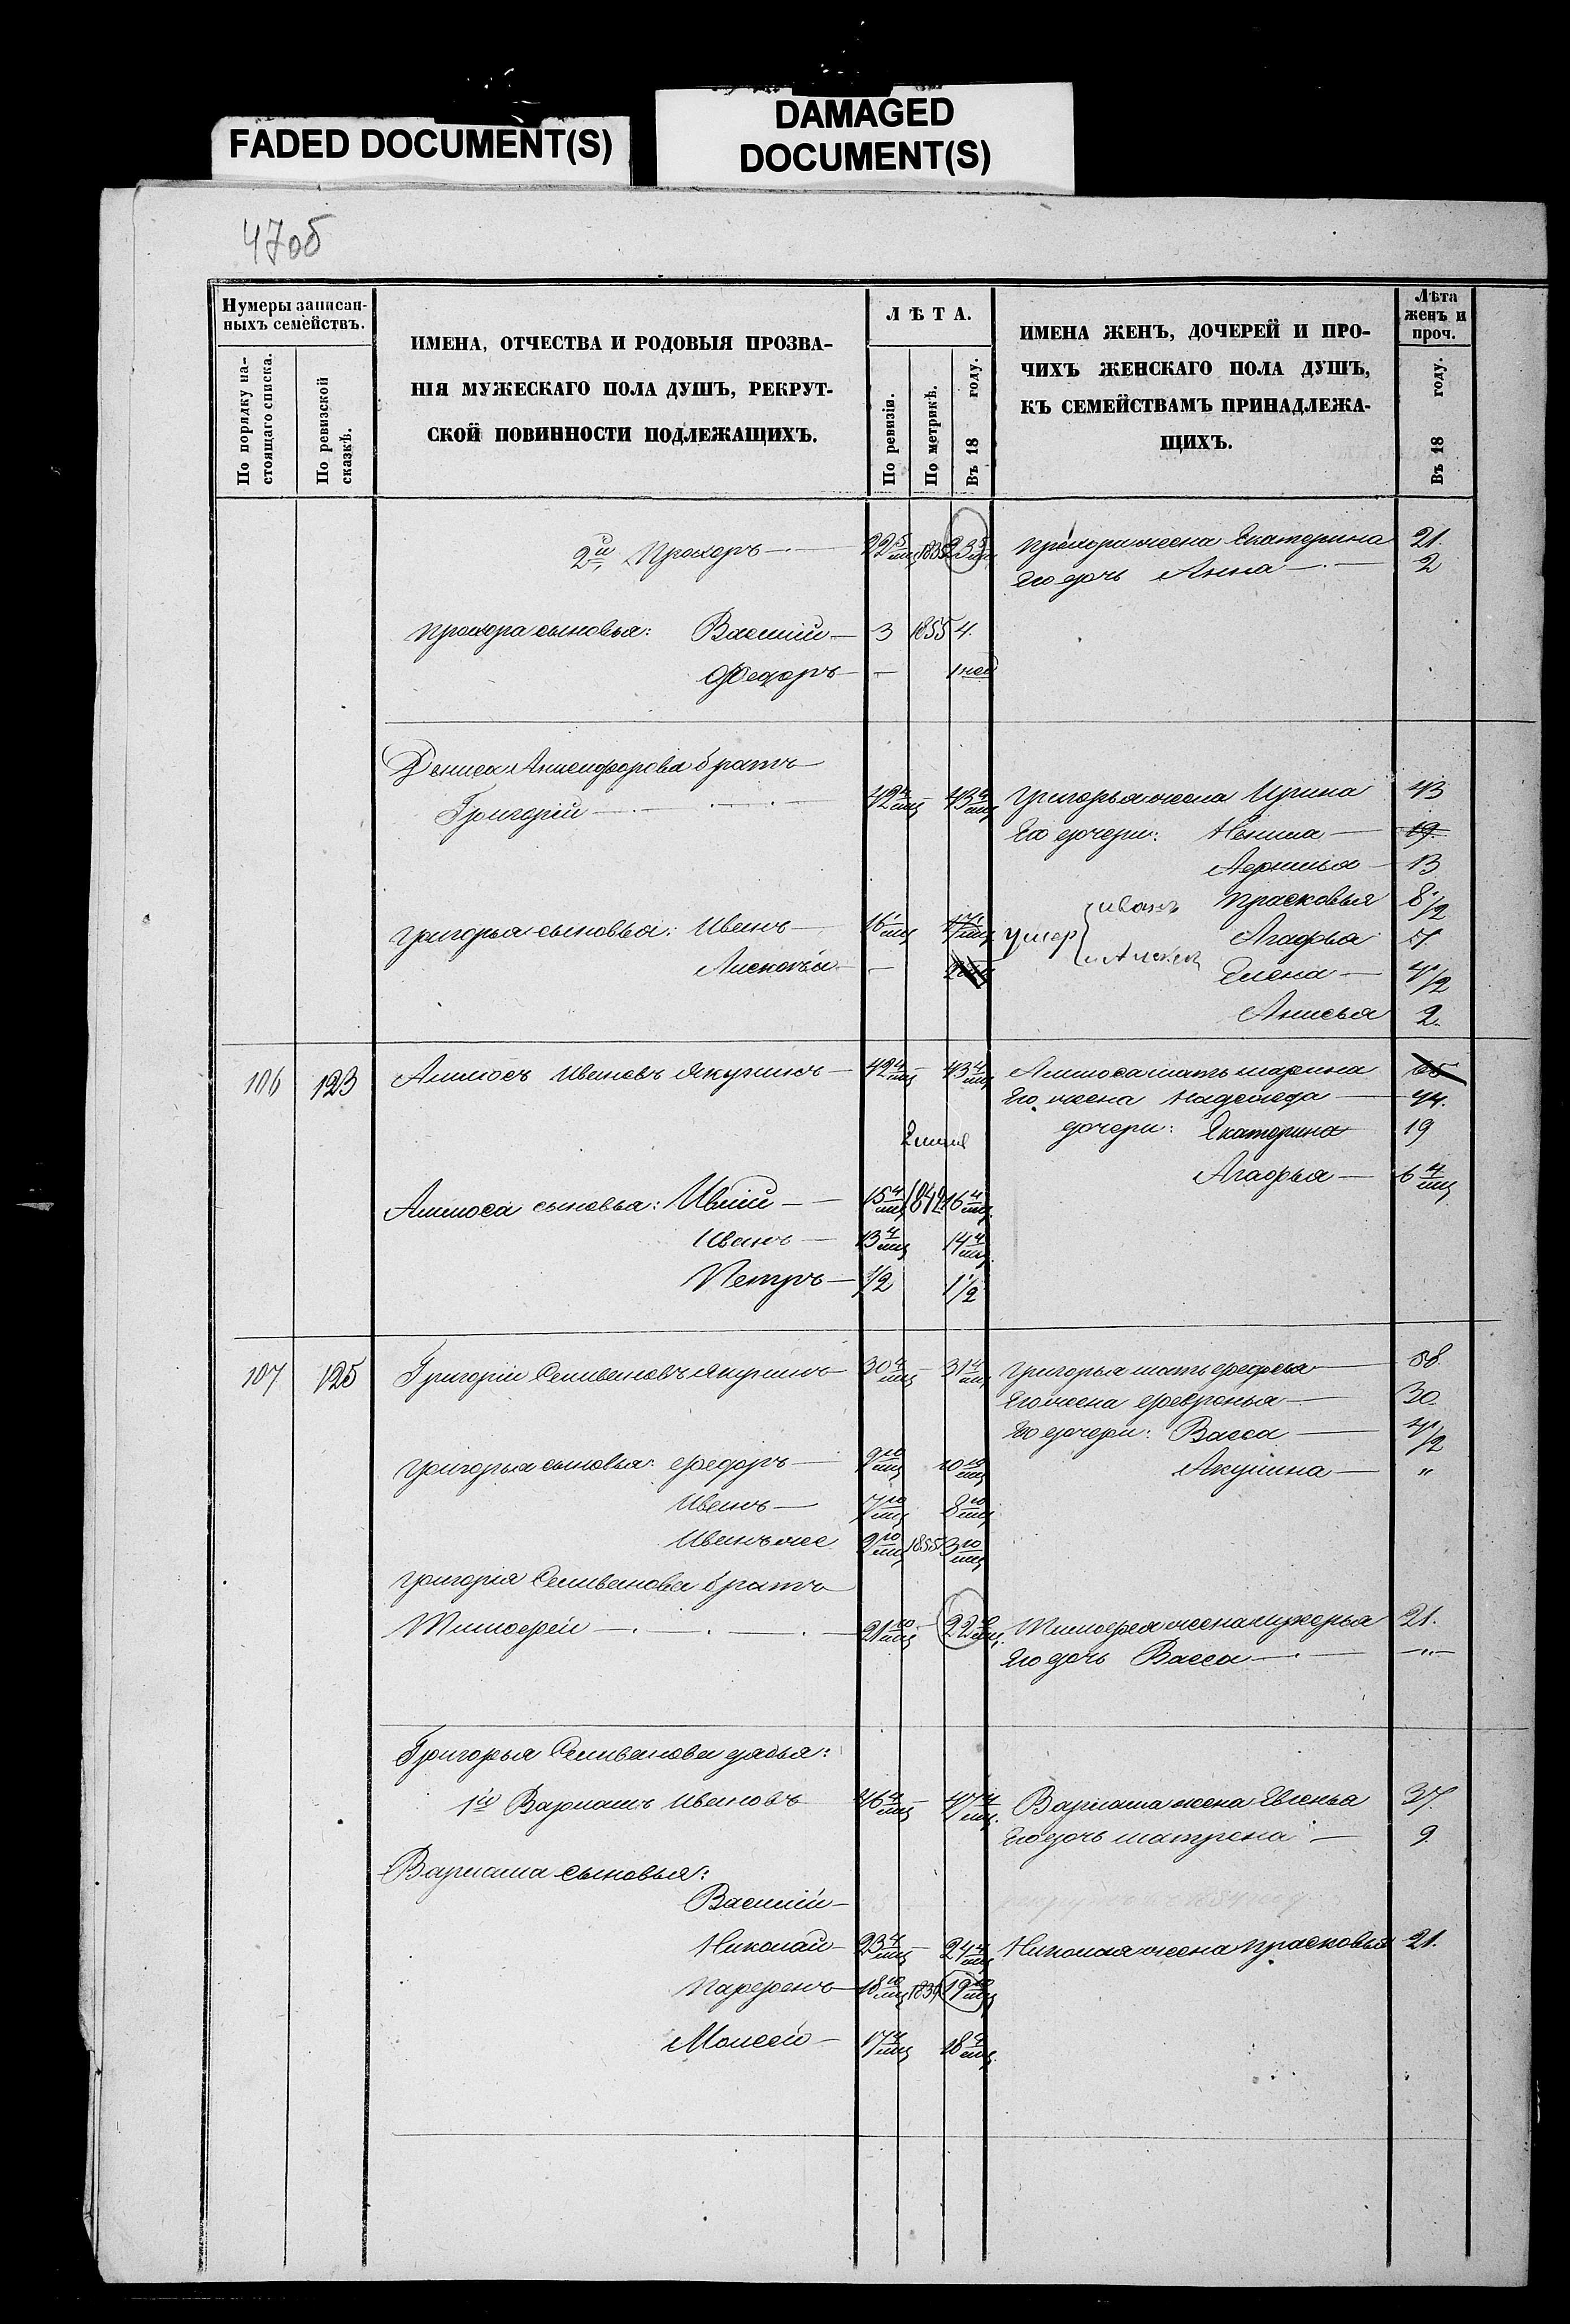 FADED DOCUMENT(S)
DAMAGED
DOCUMENT(S)
47об
Нумеры записан-
ныхъ семействъ.
По порядку на-
стоящаго списка.
По ревизской
сказкѣ.
ИМЕНА, ОТЧЕСТВА И РОДОВЫЯ ПРОЗВА-
НІЯ МУЖЕСКАГО ПОЛА ДУШЪ, РЕКРУТ-
СКОЙ ПОВИННОСТИ ПОДЛЕЖАЩИХЪ.
ЛѢТА.
По ревизіи.
По метрикѣ.
Въ 18 году.
ИМЕНА ЖЕНЪ, ДОЧЕРЕЙ И ПРО-
ЧИХЪ ЖЕНСКАГО ПОЛА ДУШЪ,
КЪ СЕМЕЙСТВАМЪ ПРИНАДЛЕЖА-
ЩИХЪ.
Лѣта
женъ и
проч.
Въ 18 году.
2й Прохоръ 22 5/мц 23 5/мц Прохора жена Екатерина 21.
Его дочь Анна 2
Прохора сыновья: Василій 3 1855 4.
Федоръ — 1 нед
Дениса Анисифорова братъ
Григорій 42 4/мц — 43 4/мц Григорья жена Ирина 43
Его дочери: 19.
13
Прасковья 8 1/2
Григорья сыновья: Иванъ 16 1/мц 17 1/мц умер { иванъ Агафья 7.
Алексѣй — и Алексей Елена 4 1/2
Анисья 2.
106 123 Аммосъ Ивановъ Якушинъ 42 4/мц — 43 4/мц Аммоса мать Марина 65
Его жена Надежда 44.
дочери: Екатерина 19
Агафья 6 4/мц
Аммоса сыновья: 15 4/мц 1842 16 4/мц
Иванъ 13 4/мц 14 4/мц
Петръ 1/2 1 1/2
107 125 Григорій Селивановъ Якушинъ 30 4/мц — 31 4/мц Григорья мать Федосья 58.
Его жена Февронья 30.
Его дочери: Васса 4 1/2
Григорья сыновья: Федоръ 9 10/мц 10 10/мц Акулина "
Иванъ 7 10/мц 8 10/мц
Иванъ же 2 10/мц 1855 3 10/мц
Григорія Селиванова братъ
Тимофей 21 10/мц — 22 10/мц Тимофея жена Лукерья 21.
Его дочь Васса — " —
Григорья Селиванова дядья:
1й Варламъ Ивановъ 46 4/мц — 47 4/мц Варлама жена Евгенья 37.
Его дочь Матрена 9.
Варлама сыновья:
Василій
Николай 23 4/мц — 24 4/мц Николая жена Прасковья 21.
Парфенъ 18 10/мц 1839 19 10/мц
Моисей 17 4/мц 18 4/мц